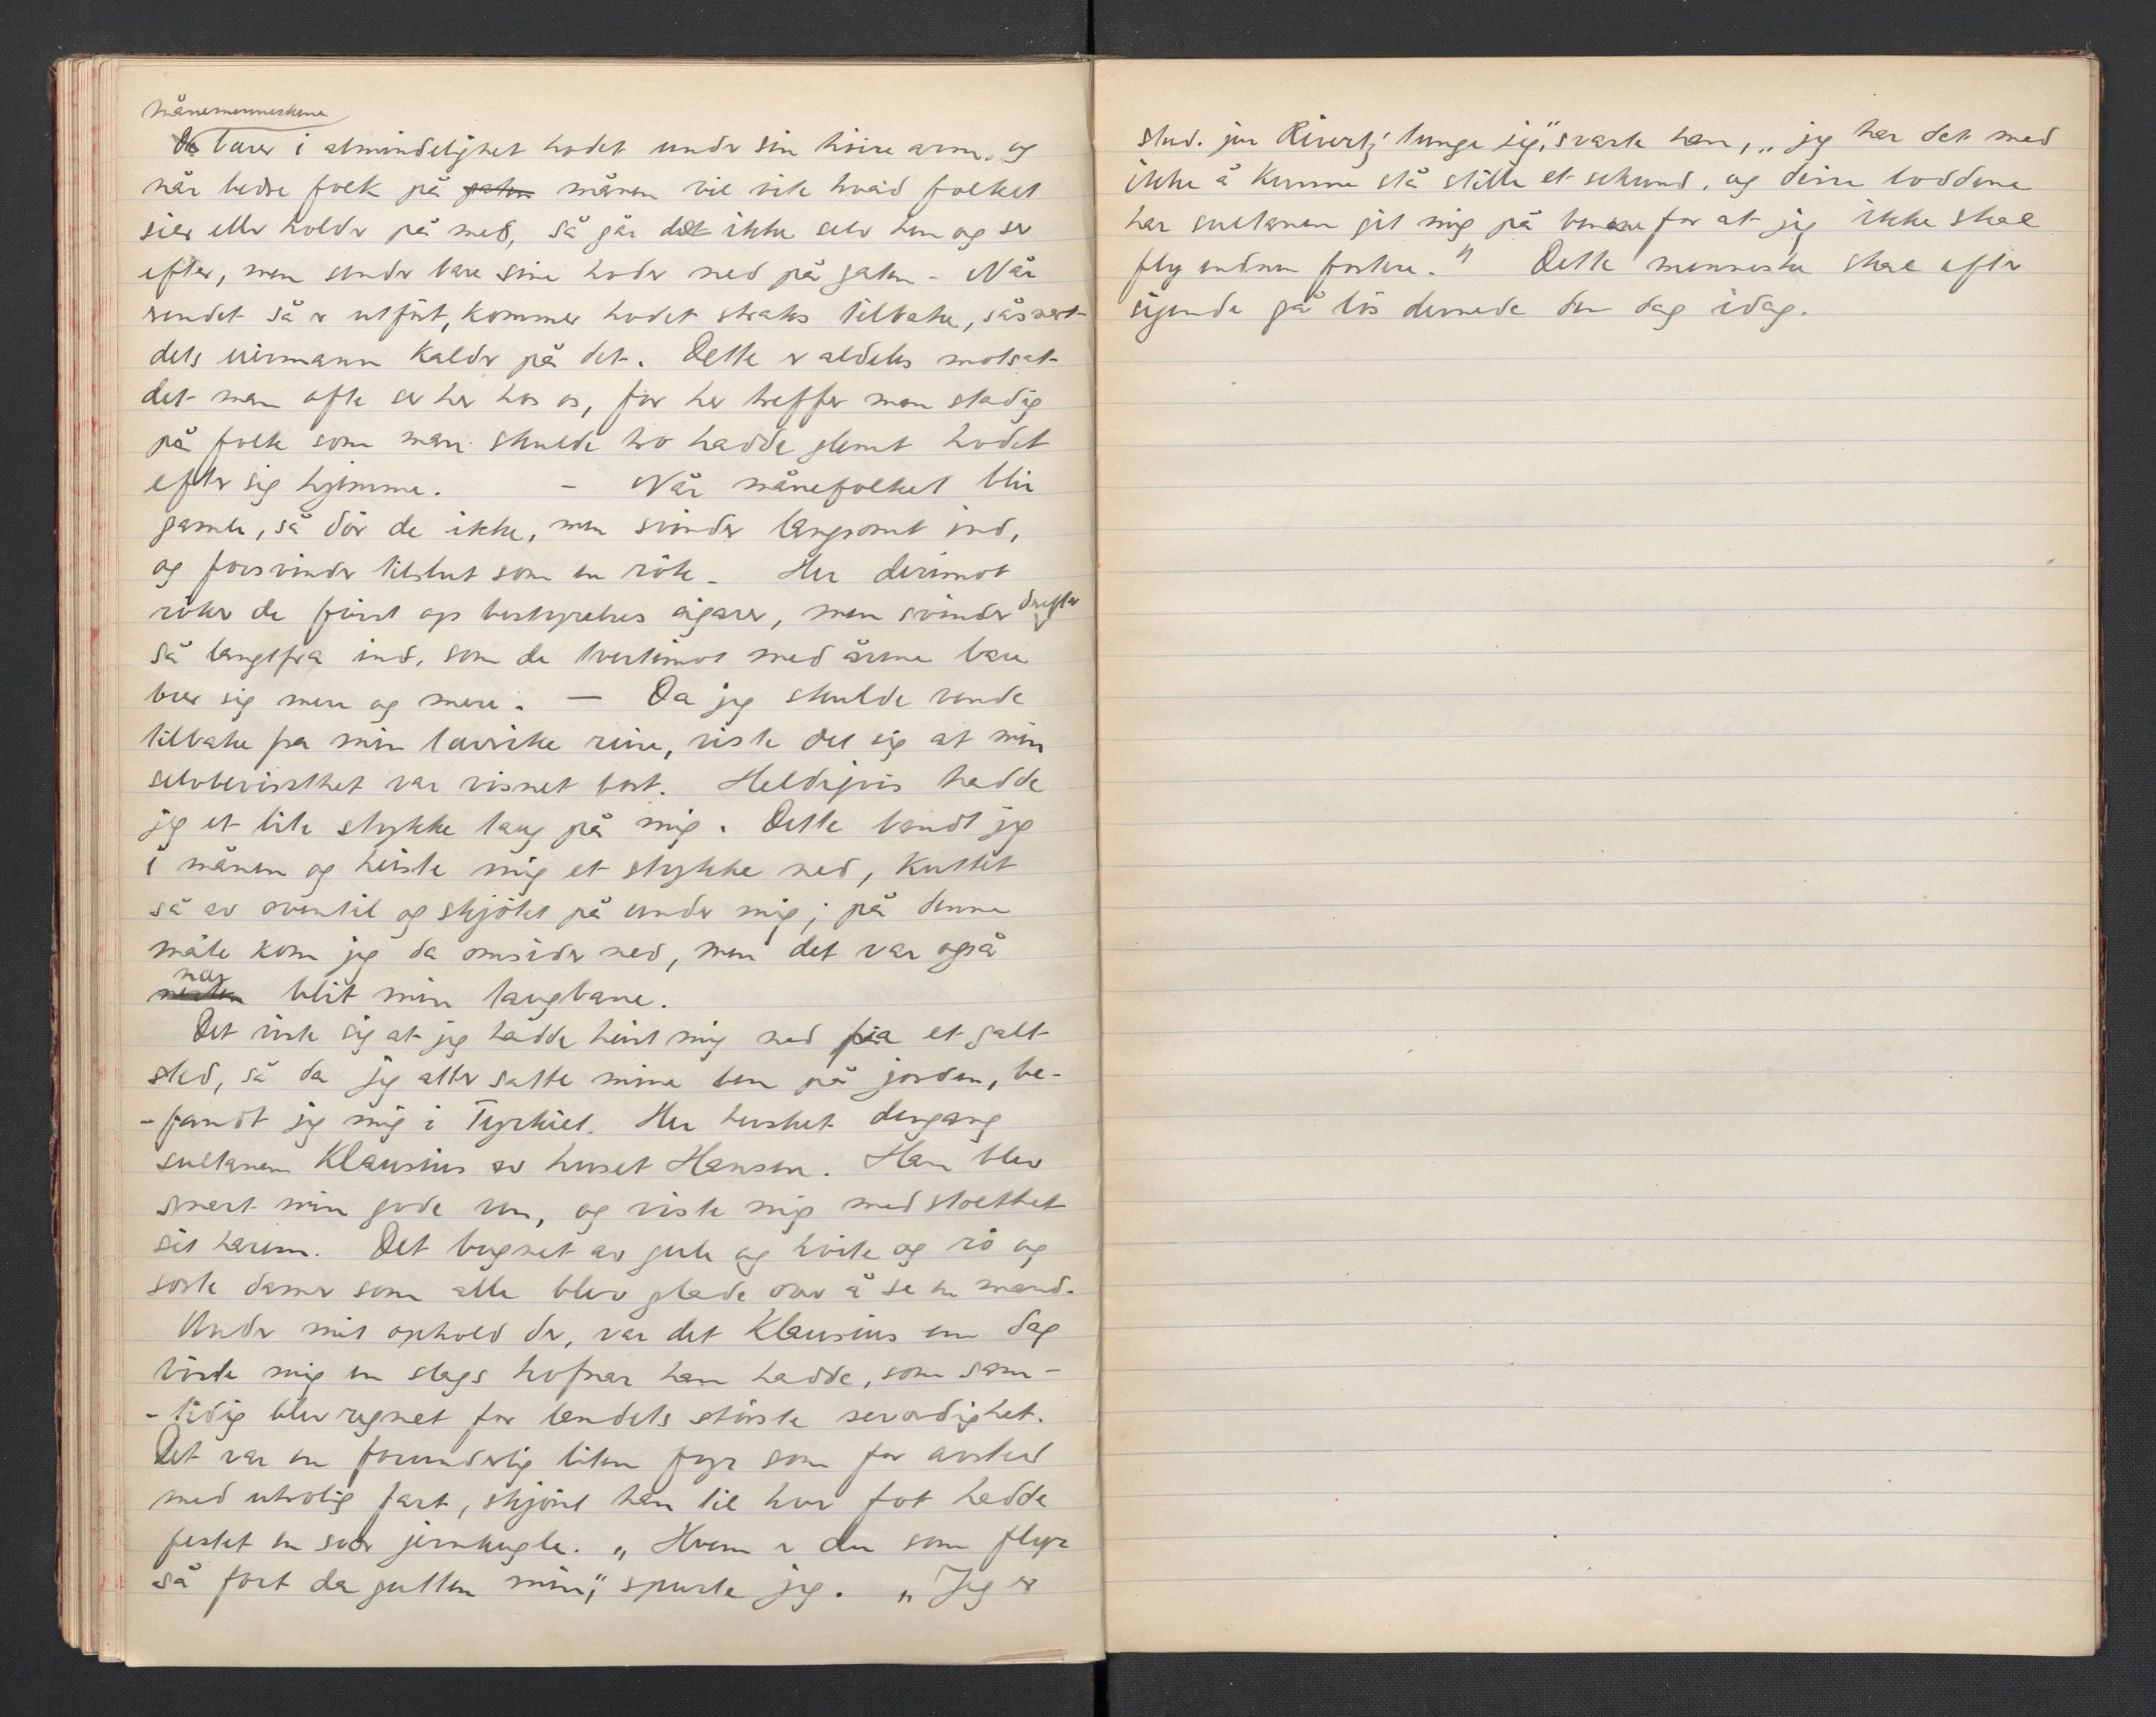 Månemenneskene
De bærer i almindelighet hodet under sin höire arm, og
når bedre folk på gaten månen vil vite hvad folket
sier eller holder på med, så går det ikke selv hen og ser
efter, men sender bare sine hoder ned på gaten - Når
rendet så er utfört, kommer hodet straks tilbake, såsnert
dets eiermann kalder på det. Dette er aldeles motsat
det man ofte ser her hos os, for her treffer man stadig
på folk som man skulde tro hadde glemt hodet
efter sig hjemme. - Når månefolket blir
gamle, så dör de ikke, men svinder langsomt ind,
og forsvinder tilslut som en rök - Her derimot
röker de först op bestyrelses cigarer, men svinder derefter
så langtfra ind, som de tvertimot med årene bare
brer sig mere og mere. — Da jeg skulde vende
tilbake fra min luvike reise, viste det sig at min
selvbevissthet var visnet bort. Heldigvis hadde
jeg et lite stykke taug på mig. Dette bandt jeg
i månen og heiste mig et stykke ned, kuttet
så av oventil og skjötet på under mig; på denne
måte kom jeg da omsider ned, men det var også
nesten nær blit min taugbane.
Det viste sig at jeg hadde heist mig ned fra et galt
sted, så da jeg atter satte mine ben på jorden, be-
-fandt jeg mig i Tyrkiet. Her hersket dengang
sultanen Klausius av huset Hansen. Han blev
snart min gode ven, og viste mig med stolthet
sit harem. Det bugnet av gule og hvite og rö og
sorte damer som alle blev glade over å se en mand.
Under mit ophold der, var det Klausius en dag
viste mig en slags hofnar han hadde, som sam-
-tidig blev regnet for landets störste severdighet.
Det var en forunderlig liten fyr som for avsted
med utrolig fart, skjönt han til hver fot hadde
festet en svær jernkugle. „Hvem er du som flyr
så fort da gutten min," spurte jeg. „Jeg er
stud. jur Rivertz' tunge jeg," svarte han, „jeg har det med
ikke å kunne stå stille et sekund, og disse loddene
har sultanen git mig på benene for at jeg ikke skal
fly endnu fortere." Dette menneske skal efter
sigende gå lös dernede den dag idag.